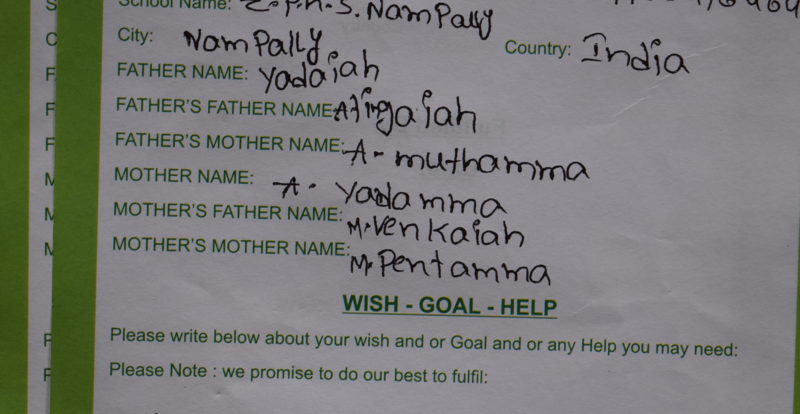 S School Name: Z.P.H.S. NamPally
C City: NamPally Country: India
F FATHER NAME: Yadaiah
F FATHER'S FATHER NAME:
F FATHER'S MOTHER NAME: A- muthamma
M MOTHER NAME: A. Yadamma
M MOTHER'S FATHER NAME: M.Venkaiah
M MOTHER'S MOTHER NAME: M.Pentamma
WISH - GOAL - HELP
F Please write below about your wish and or Goal and or any Help you may need:
F Please Note : we promise to do our best to fulfil: